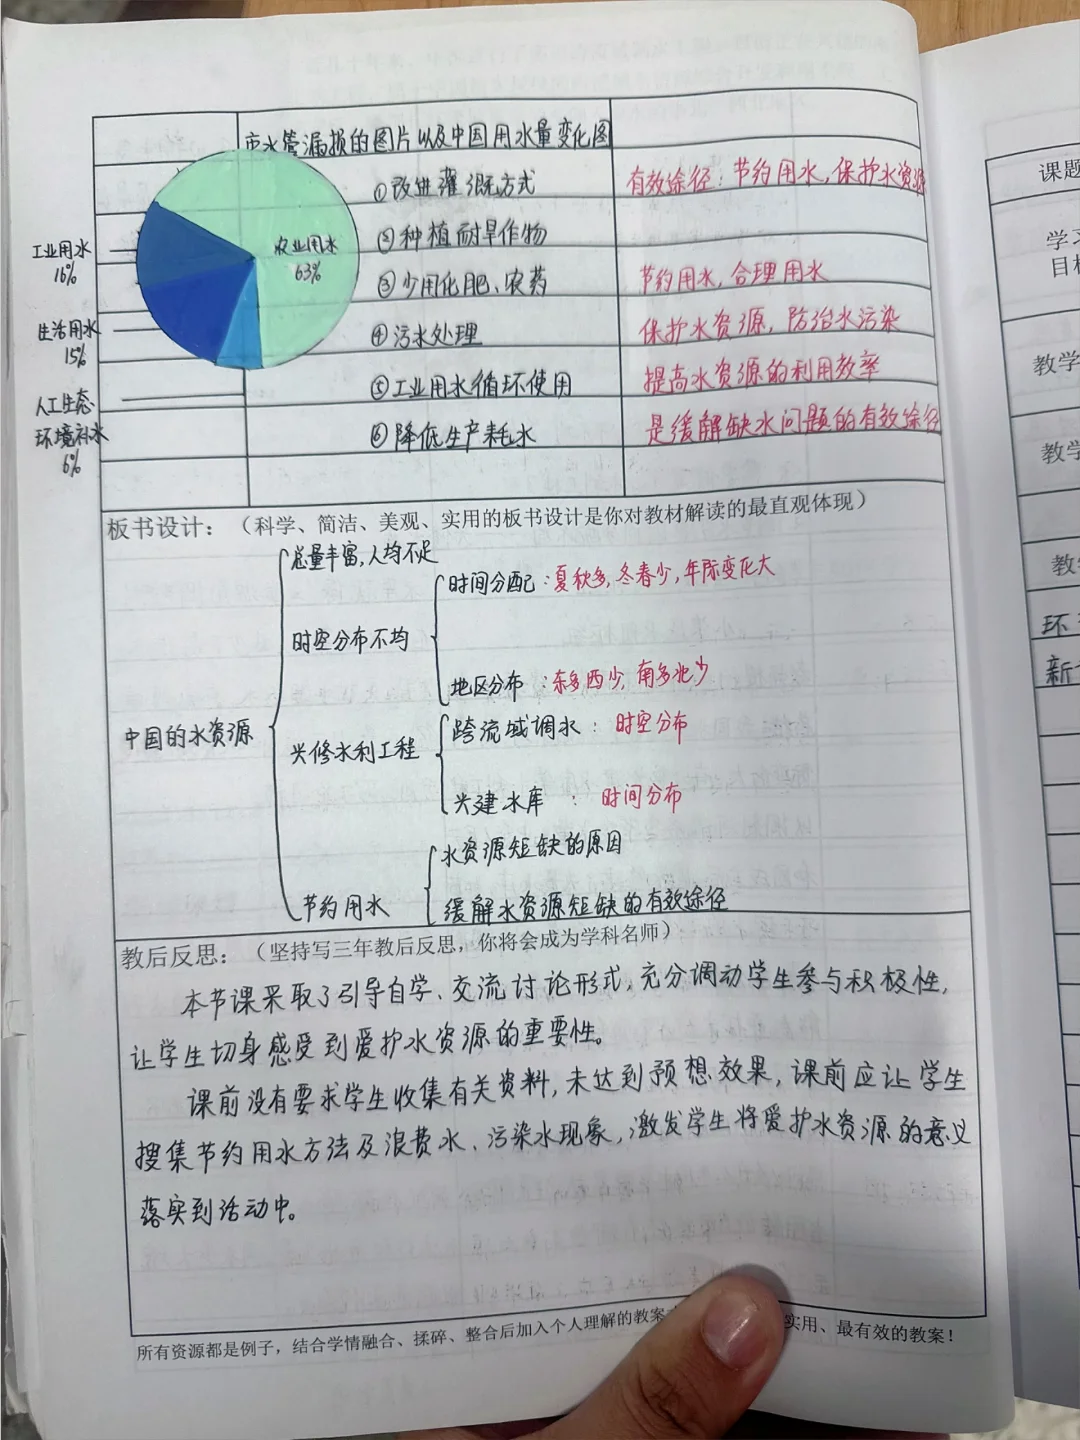 水管漏损的图片以及中国用水量变化图
①改进灌溉方式
有效途径：节约用水，保护水资源
农业用水
63%
②种植耐旱作物
工业用水
16%
③少用化肥、农药
节约用水，合理用水
生活用水
15%
④污水处理
保护水资源，防治水污染
⑤工业用水循环使用
提高水资源的利用效率
人工生态
环境补水
6%
⑥降低生产耗水
是缓解缺水问题的有效途径
板书设计：（科学、简洁、美观、实用的板书设计是你对教材解读的最直观体现）
中国的水资源
总量丰富，人均不足
时空分布不均
时间分配：夏秋多，冬春少，年际变化大
地区分布：东多西少，南多北少
兴修水利工程
跨流域调水：时空分布
兴建水库：时间分布
节约用水
水资源短缺的原因
缓解水资源短缺的有效途径
教后反思：（坚持写三年教后反思，你将会成为学科名师）
本节课采取了引导自学、交流讨论形式，充分调动学生参与积极性，
让学生切身感受到爱护水资源的重要性。
课前没有要求学生收集有关资料，未达到预想效果，课前应让学生
搜集节约用水方法及浪费水、污染水现象，激发学生将爱护水资源的意义
落实到活动中。
所有资源都是例子，结合学情融合、揉碎、整合后加入个人理解的教案
实用、最有效的教案！
课题
学习
目标
教学
教学
教
环
新